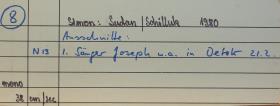 8 Simon: Sudan / Schilluk 1980
Ausschnitte:
N13 1. Sänger Joseph u.a. in Detok 21.2.
mono
38 cm/sec